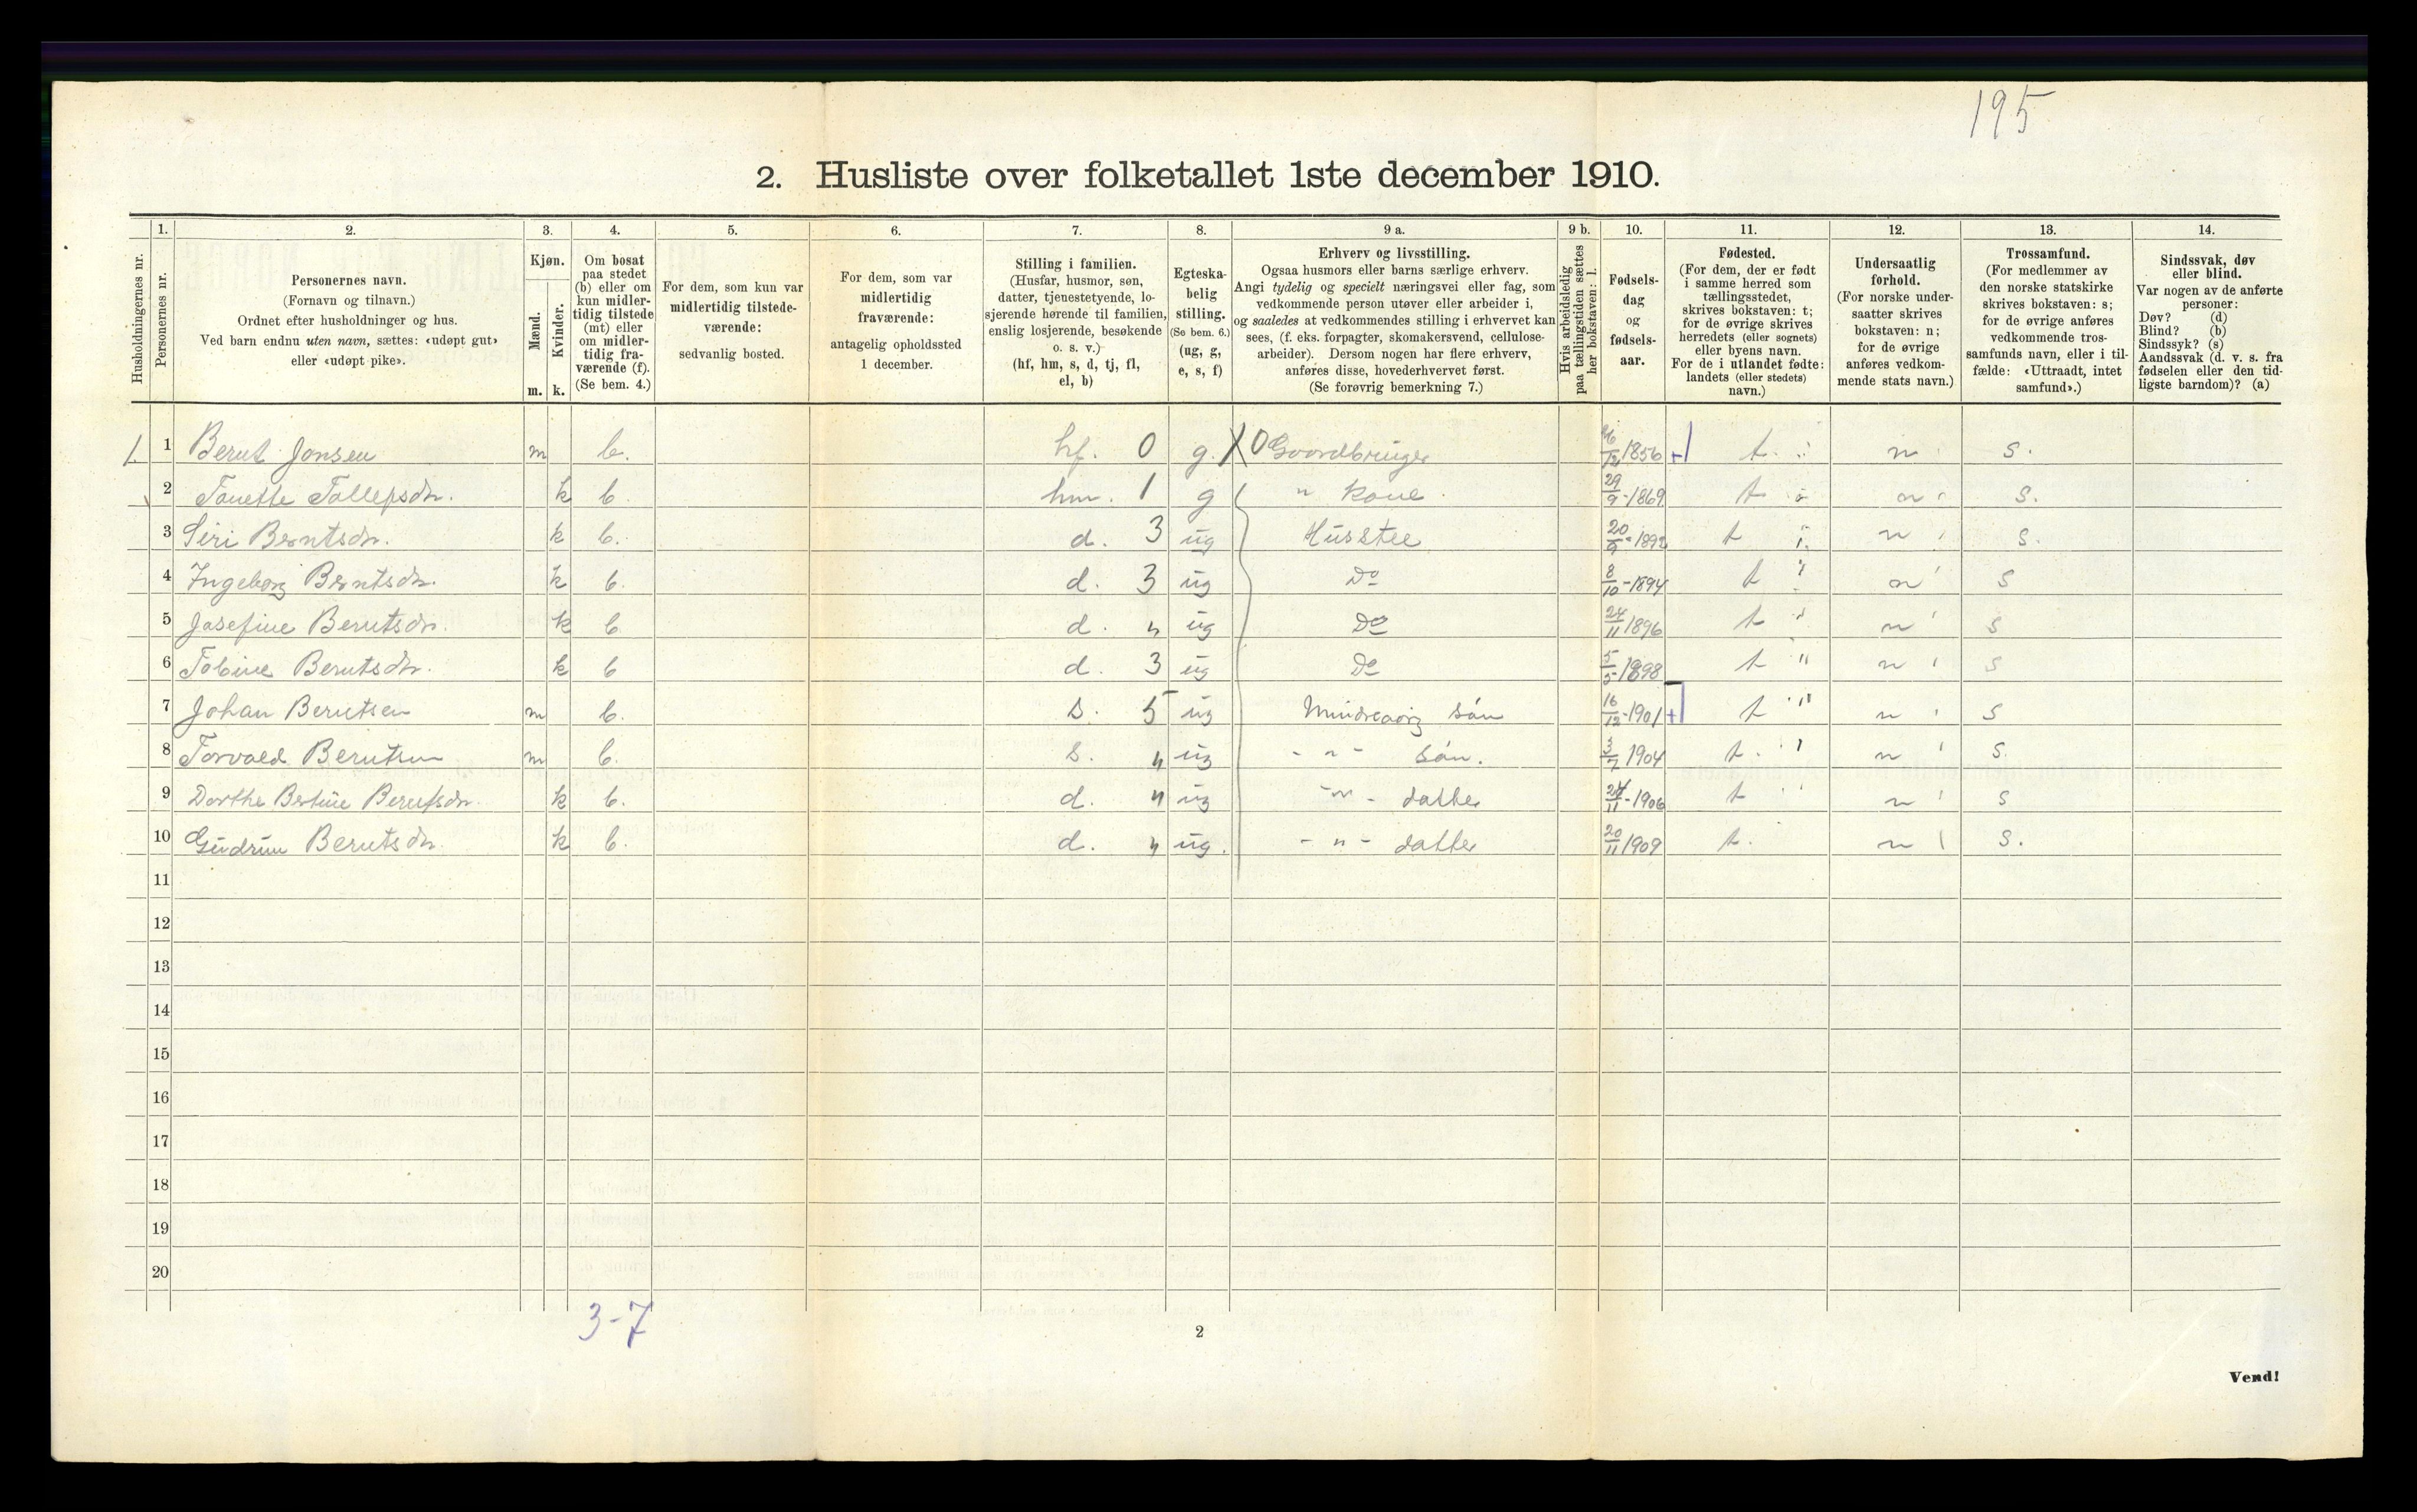 195
2. Husliste over folketallet 1ste december 1910.
Husholdningernes nr.
1.
Personernes nr.
2.
Personernes navn.
(Fornavn og tilnavn.)
Ordnet efter husholdninger og hus.
Ved barn endnu uten navn, sættes: «udøpt gut»
eller «udøpt pike».
3.
Kjøn.
Mænd.
Kvinder.
m. k.
4.
Om bosat
paa stedet
(b) eller om
kun midler-
tidig tilstede
(mt) eller
om midler-
tidig fra-
værende (f).
(Se bem. 4.)
5.
For dem, som kun var
midlertidig tilstede-
værende:
sedvanlig bosted.
6.
For dem, som var
midlertidig
fraværende:
antagelig opholdssted
1 december.
7.
Stilling i familien.
(Husfar, husmor, søn,
datter, tjenestetyende, lo-
sjerende hørende til familien,
enslig losjerende, besøkende
o. s. v.)
(hf, hm, s, d, tj, fl,
el, b)
8.
Egteska-
belig
stilling.
(Se bem. 6.)
(ug, g,
e, s, f)
9 a.
Erhverv og livsstilling.
Ogsaa husmors eller barns særlige erhverv.
Angi tydelig og specielt næringsvei eller fag, som
vedkommende person utøver eller arbeider i,
og saaledes at vedkommendes stilling i erhvervet kan
sees, (f. eks. forpagter, skomakersvend, cellulose-
arbeider). Dersom nogen har flere erhverv,
anføres disse, hovederhvervet først.
(Se forøvrig bemerkning 7.)
9 b.
Hvis arbeidsledig
paa tællingstiden sættes
her bokstaven: l.
10.
Fødsels-
dag
og
fødsels-
aar.
11.
Fødested.
(For dem, der er født
i samme herred som
tællingsstedet,
skrives bokstaven: t;
for de øvrige skrives
herredets (eller sognets)
eller byens navn.
For de i utlandet fødte:
landets (eller stedets)
navn.)
12.
Undersaatlig
forhold.
(For norske under-
saatter skrives
bokstaven: n;
for de øvrige
anføres vedkom-
mende stats navn.)
13.
Trossamfund.
(For medlemmer av
den norske statskirke
skrives bokstaven: s;
for de øvrige anføres
vedkommende tros-
samfunds navn, eller i til-
fælde: «Uttraadt, intet
samfund».)
14.
Sindssvak, døv
eller blind.
Var nogen av de anførte
personer:
Døv? (d)
Blind? (b)
Sindssyk? (s)
Aandssvak (d. v. s. fra
fødselen eller den tid-
ligste barndom)? (a)
1. 1 Bernt Jonsen m b. hf. 0 g. X 0 Gaardbruger 26/12 1856 t. n s.
2 Tonette Tollefsdn. k b. hm. 1 g " Kone. 29/9-1869 t n s.
3 Siri Berntsdn. k b. d. 3 ug Husstel 20/9-1892 t n s.
4 Ingeborg Berntsdn. k b. d. 3 ug Do 8/10-1894 t n s
5 Josefine Berntsdn. k b d. " ug Do 24/11 1896 t n s
6 Tobine Berntsdn. k b d. 3 ug Do 5/5-1898 t n s
7 Johan Berntsen m b. s. 5 ug Mindreaarig søn 16/12-1901 t n s
8 Torvald Berntsen m b. s. " ug - " - søn. 3/7 1904 t. n s.
9 Dorthe Bertine Berntsdn. k b. d. " ug - " - datter 24/11-1906 t n s
10 Gudrun Berntsdn. k b. d. " ug. - " - datter 20/11 1909 t. n s.
11
12
13
14
15
16
17
18
19
20
3-7
2
Vend!